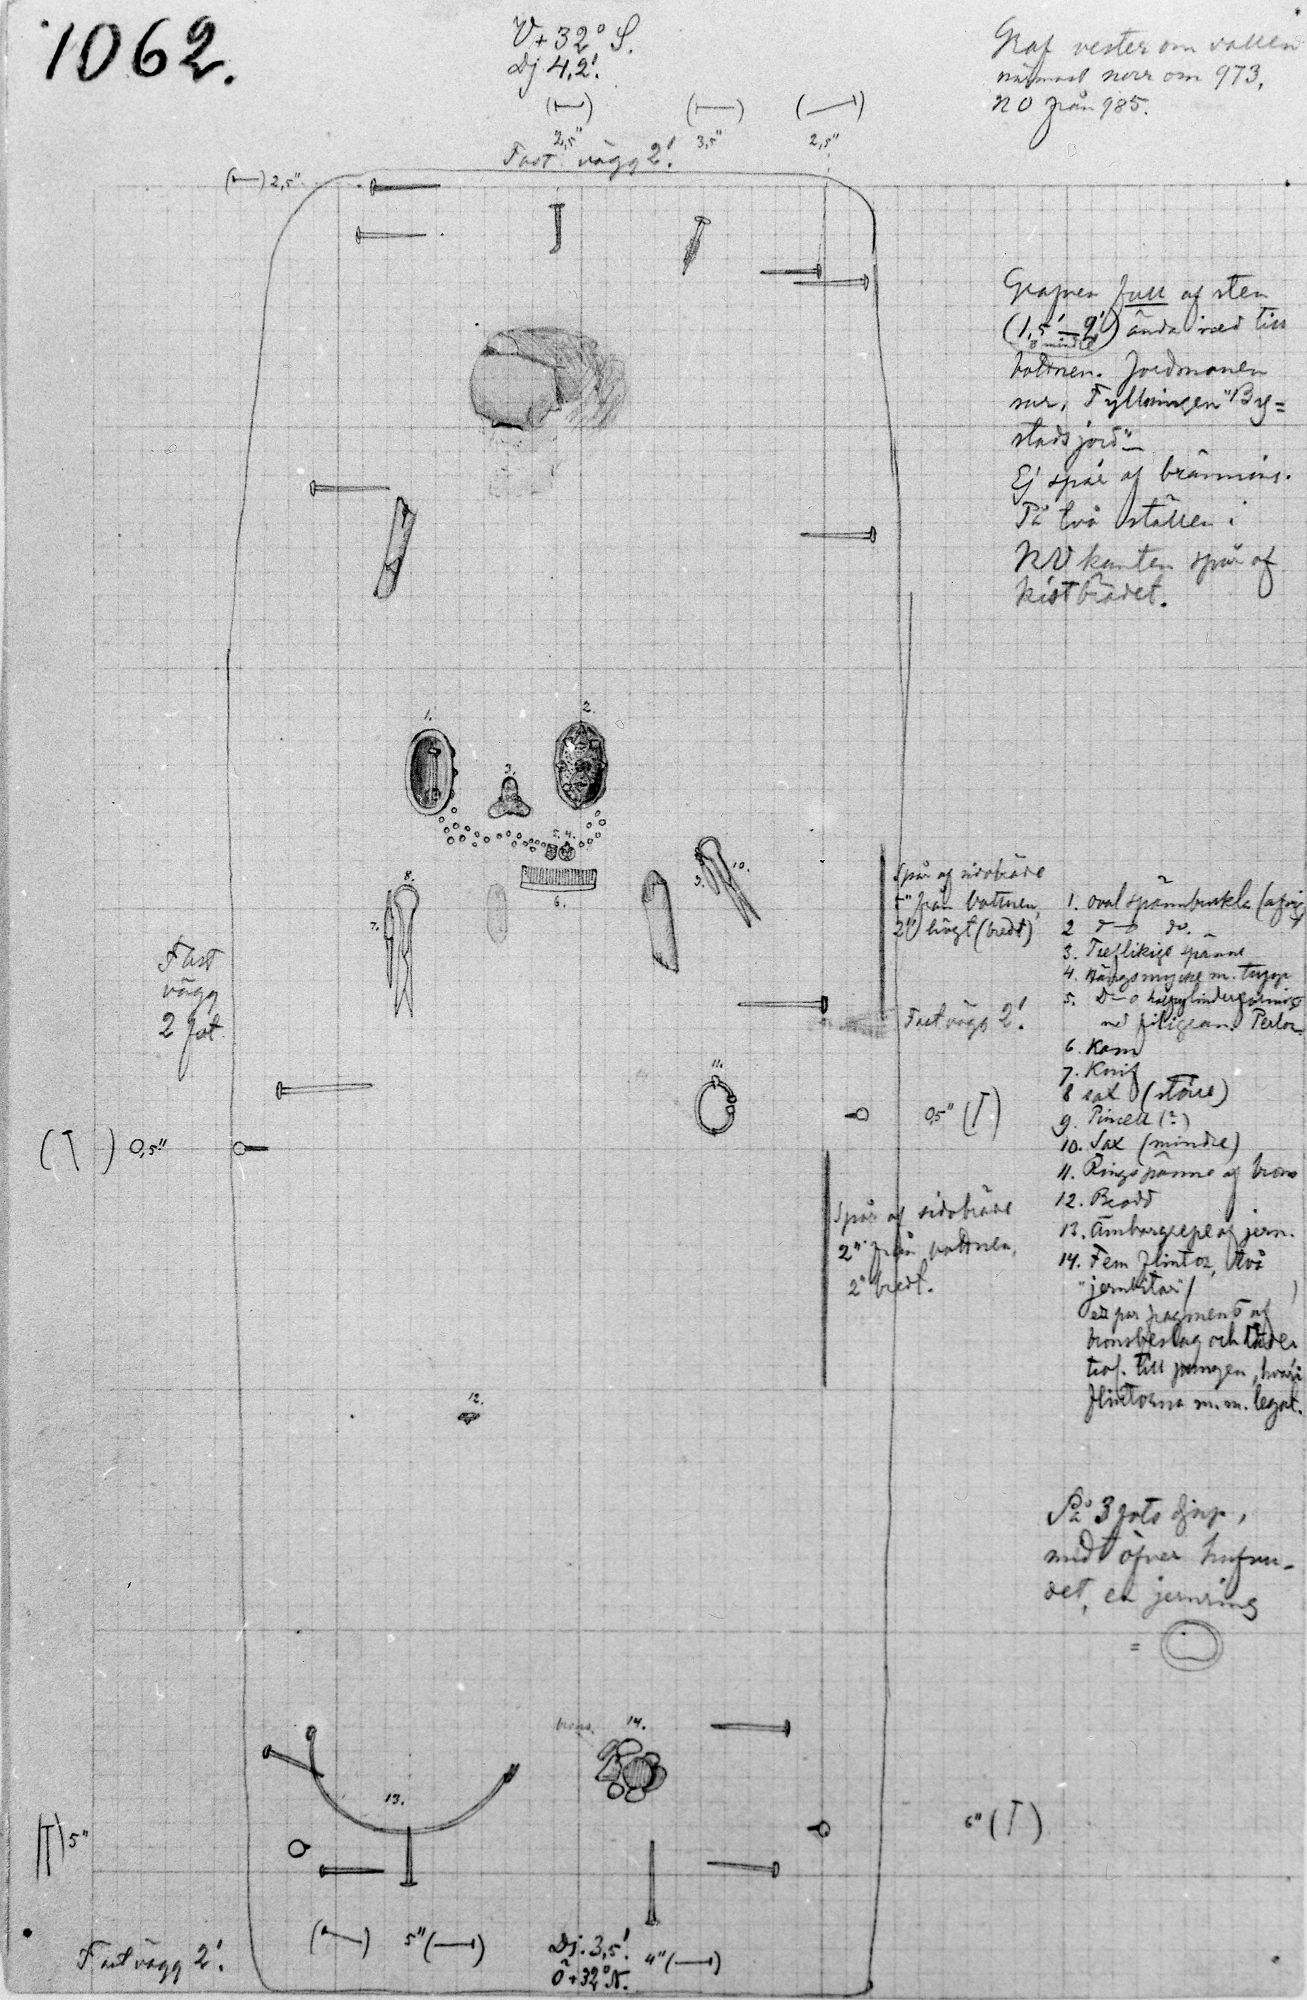 1062.
V+32° S.
Dj. 4,2'.
Graf vester om vallen
närmast norr om 973,
NO från 985.
2,5"
3,5"
2,5"
Fast vägg 2'.
2,5"
Grafven full af sten
(1,5'—2'
o mindre) ända ned till
bottnen. Jordmånen
Fyllningen "By=
stads jord"
Ej spår af bränning.
På två ställen i
NV kanten spår af
kistbrädet.
1.
2.
3.
5. 4.
6.
7.
8.
9.
10.
Spår af sidobräde
5" från bottnen,
2" högt (bredt)
Fast
vägg
2 fot
Fast vägg 2'.
1. oval spännbuckla
2 do.
3. Treflikigt spänne
4. Hängsmycke m.
5. D—o halfcylinderformigt
med filigran. Perlor.
6. Kam
7. Knif
8 sax (större)
9. Pincett (?)
10. Sax (mindre)
11. Ringspänne af brons
12. Brodd
13. Ämbargrepe af jern.
14. Fem flintor, två
"jernbitar"
ett par fragment af
bronsbeslag och läder
till pungen, hvari
flintorna m.m. legat.
11.
0,5" (T)
(T) 0,5"
Spår af sidobräde
2" från bottnen,
2" bredt.
12.
På 3 fots djup,
midt öfver hufvu-
det, en jernring
=
brons.
14.
13.
5"
6" (T)
5"
Dj. 3,5'.
Ö+32° N.
4"
Fast vägg 2'.